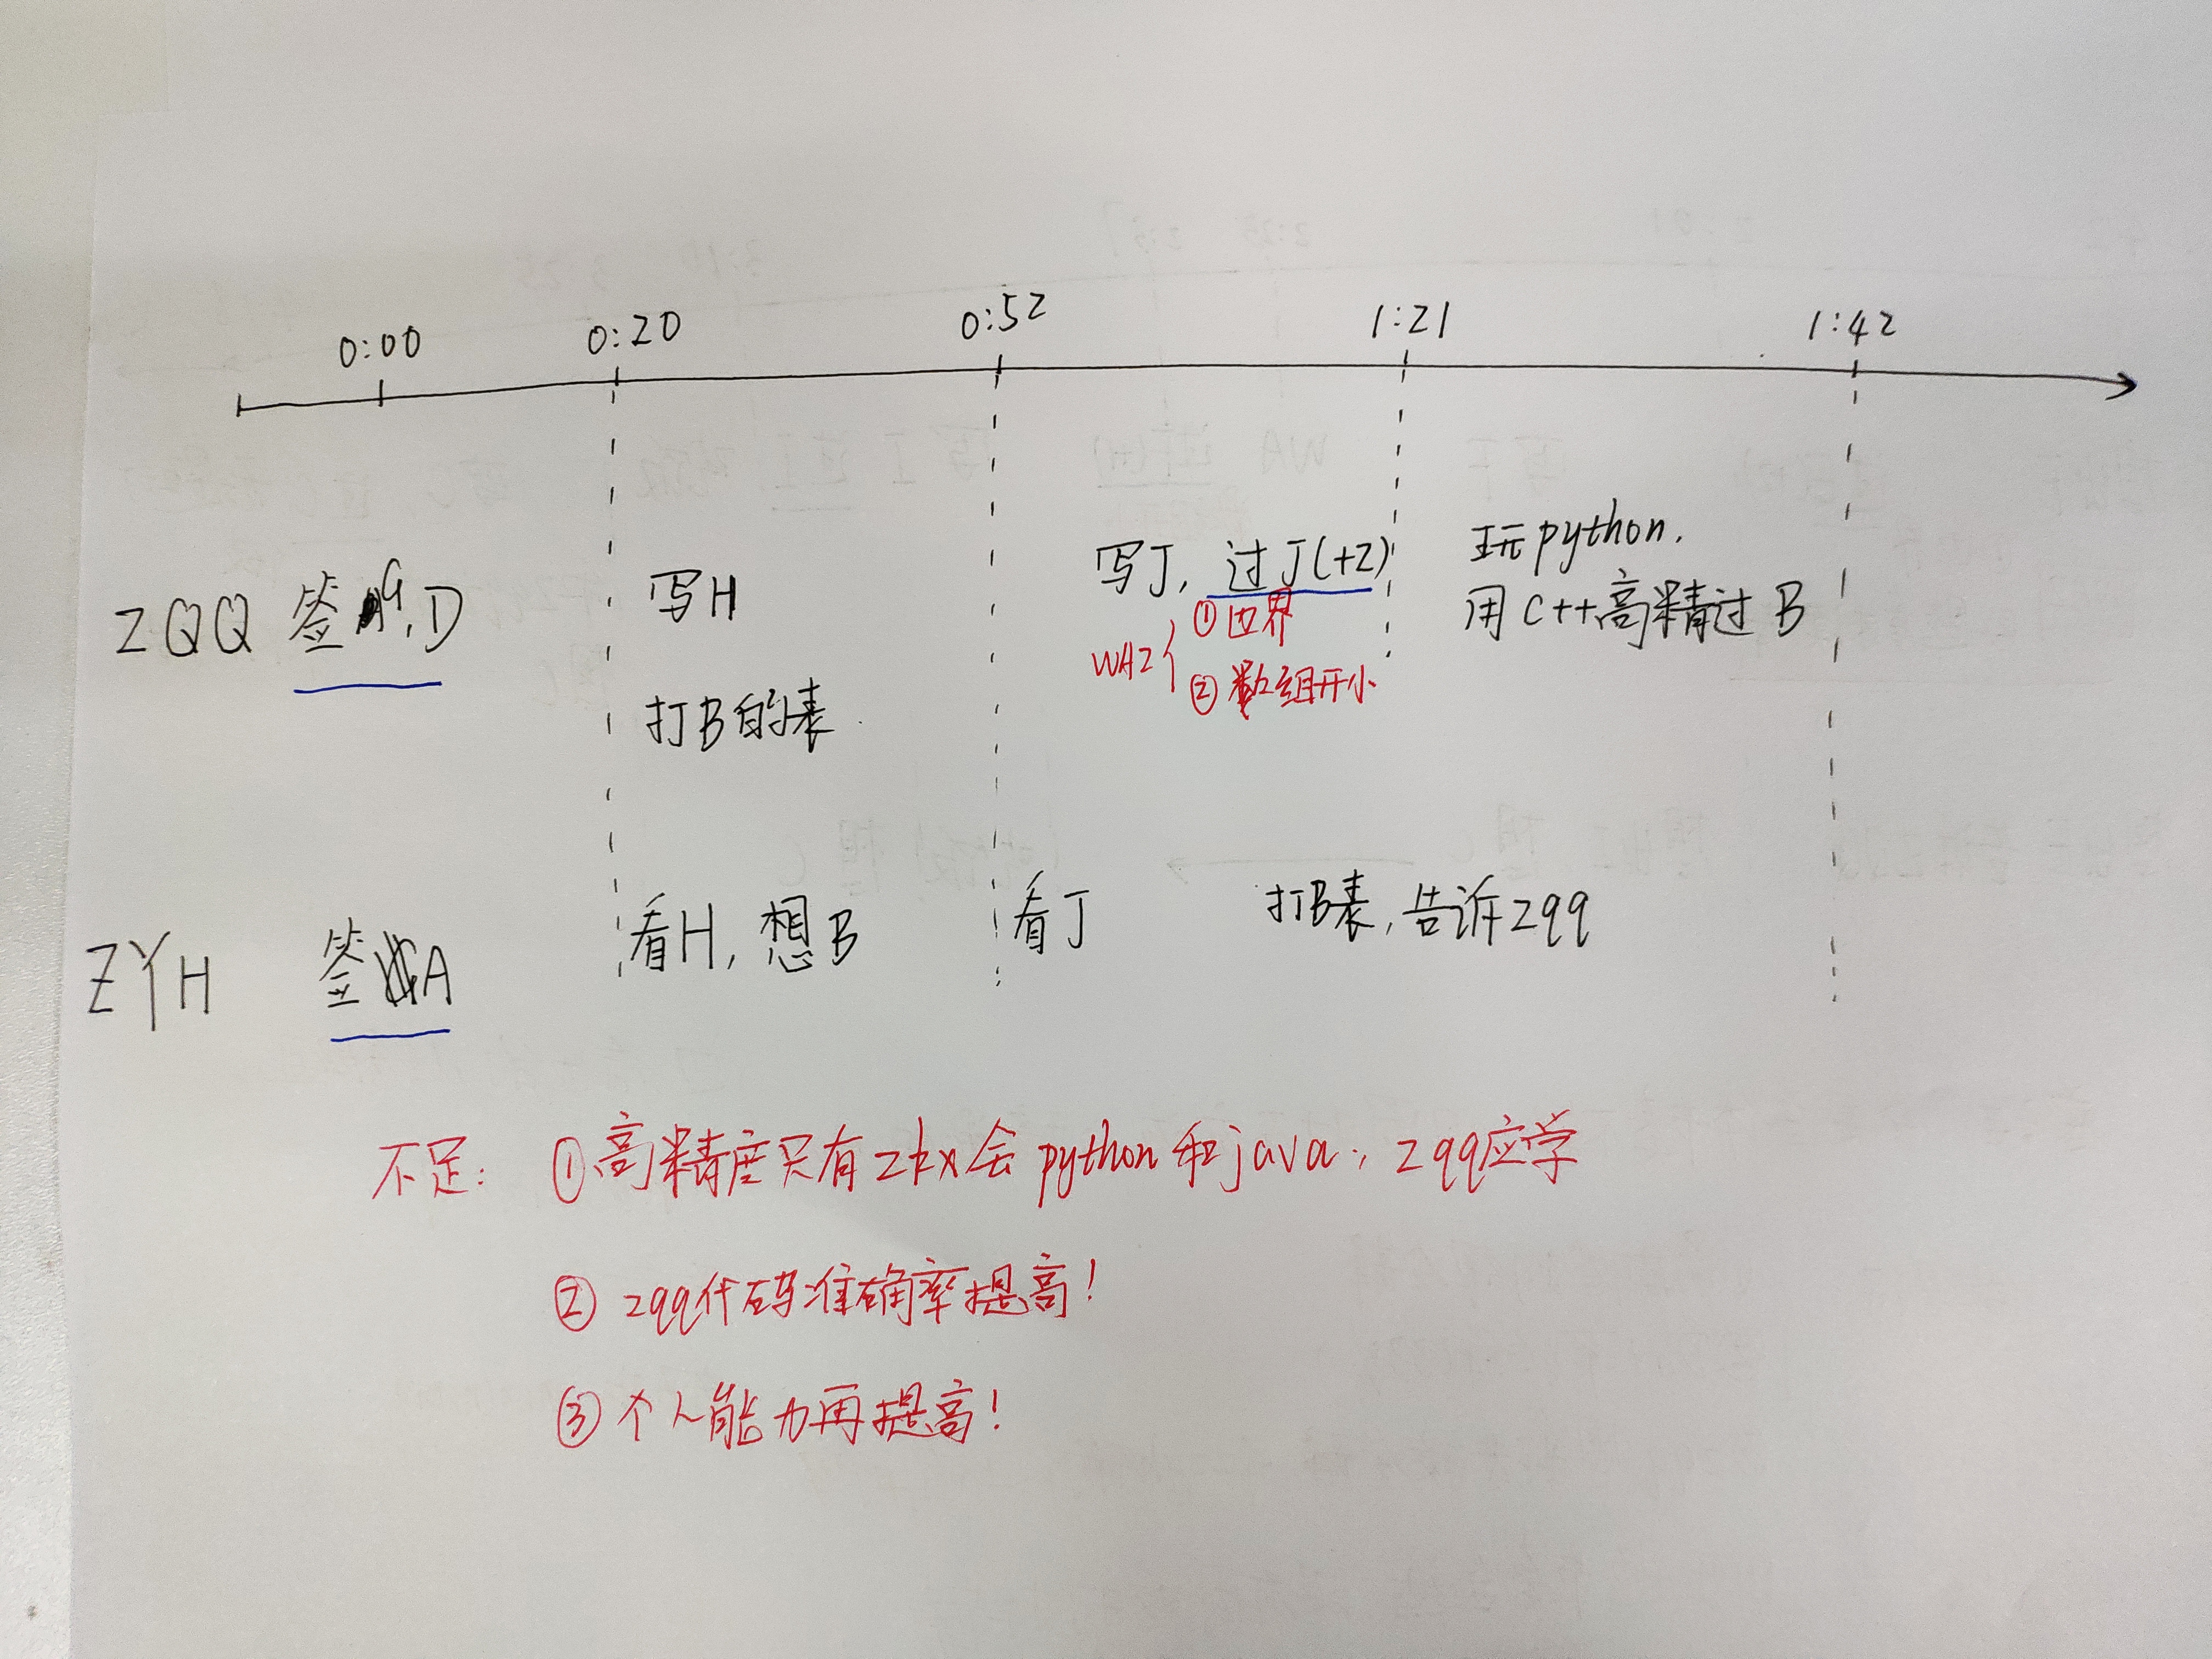 0:00 0:20 0:52 1:21 1:42
ZQQ 签G,D 写H 写J,过J(+2) 玩python.
用C++高精过B
WA2 ①边界
②数组开小
打B的表
ZYH 签A 看H,想B 看J 打B表,告诉zqq
不足: ①高精度只有zkx会python和java, zqq应学
② zqq代码准确率提高!
③ 个人能力再提高!